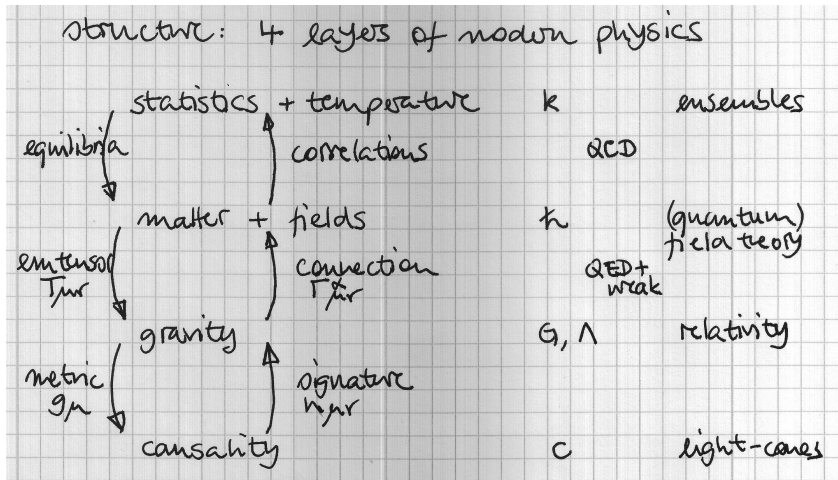 structure: 4 layers of modern physics
statistics + temperature k ensembles
equilibria correlations QCD
matter + fields ħ (quantum)
field theory
em tensor connection QED+
Tμν Γᵅμν weak
gravity G, Λ relativity
metric signature
gμ ημν
causality c light-cones